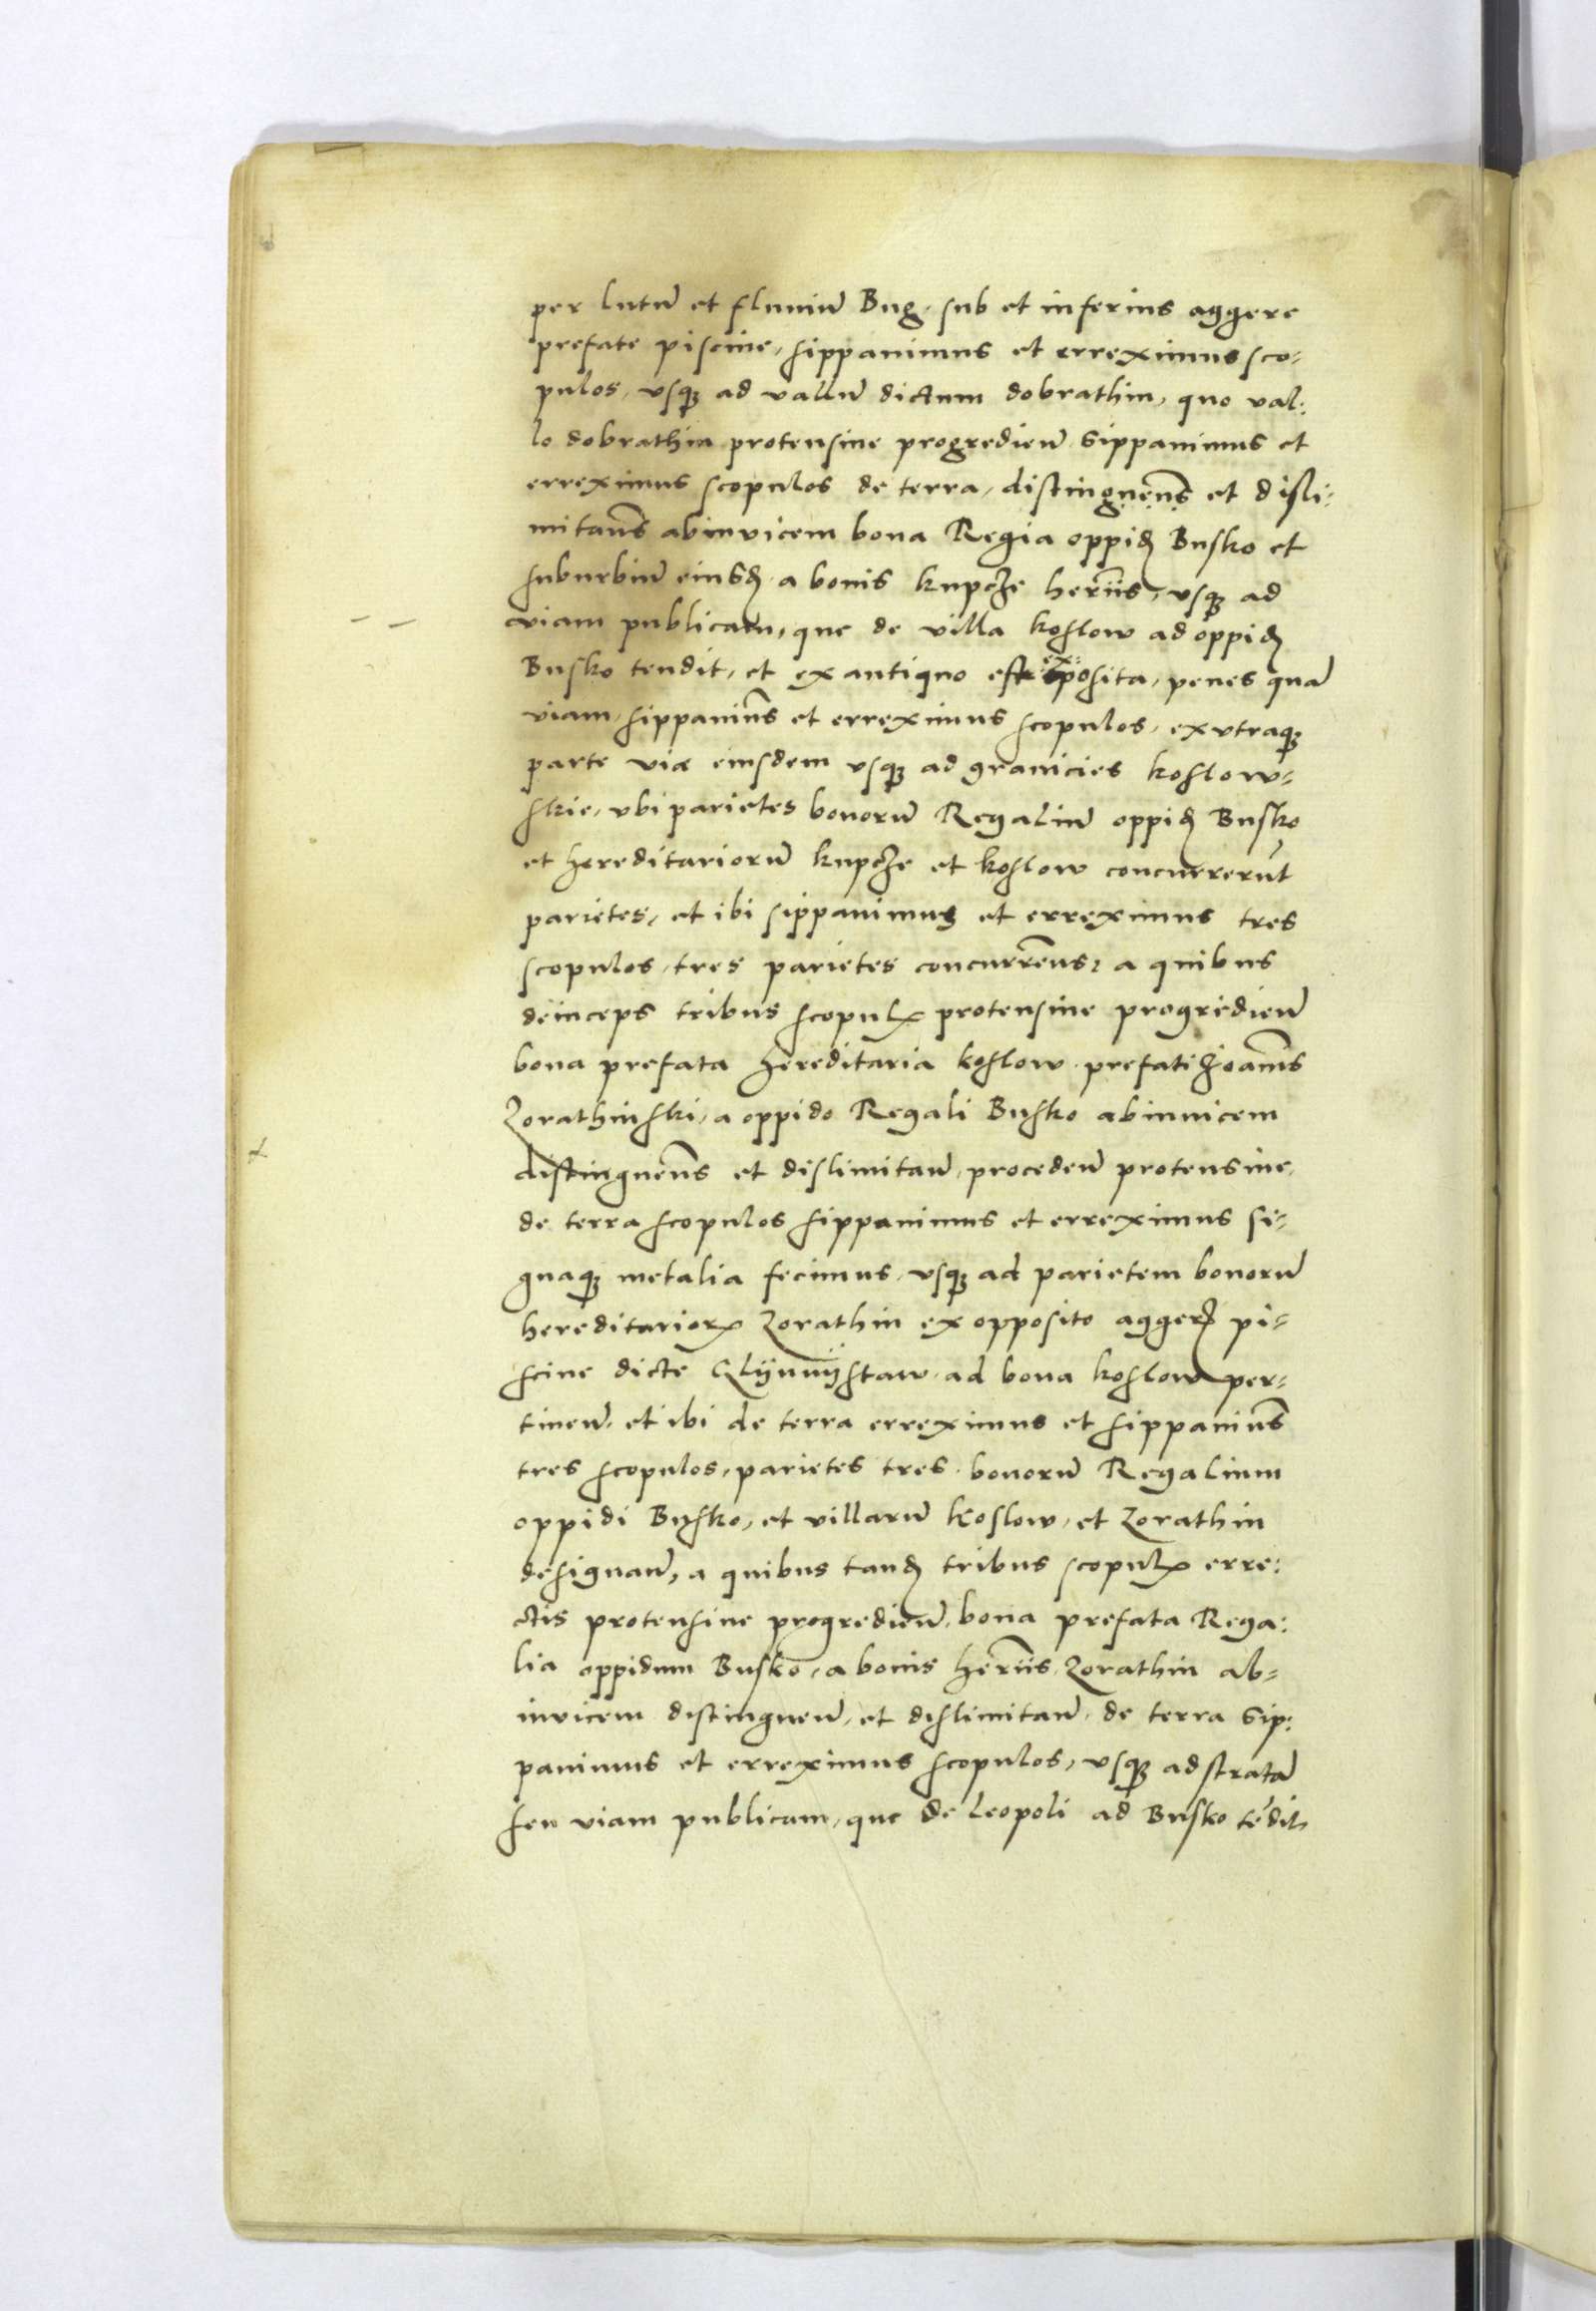 per lutū et fluuiū Bug, sub et inferius aggere
prefate piscine, sippauimus et erreximus sco-
pulos, vsqꝫ ad vallū dictum dobrathin, quo val:
lo dobrathin protensiue progredien̄ sippauimus et
erreximus scopulos de terra, distinguen̄s et disli-
mitan̄s abinuicem bona Regia oppid̄ Busko et
suburbiū eiusd̄ a bonis kupcze heriīs, vsqꝫ ad
viam publicam, que de villa koslow ad oppid̄
Busko tendit, et ex antiquo est exposita, penes quā
viam, sippauim̄s et erreximus scopulos, ex vtraqꝫ
parte vie eiusdem vsqꝫ ad granicies koslow-
skie, vbi parietes bonorū Regaliū oppid̄ Busko
et hereditariorū kupcze et koslow concurrerūt
parietes, et ibi sippauimus et erreximus tres
scopulos, tres parietes concurren̄s, a quibus
deinceps tribus scopulꝭ protensiue progredien̄
bona prefata hereditaria koslow prefati Joan̄is
Zorathinski, a oppido Regali Busko abinuicem
distinguen̄s et dislimitan̄, proceden̄ protensiue
de terra scopulos sippauimus et erreximus si-
gnaqꝫ metalia fecimus, vsqꝫ ad parietem bonorū
hereditarioꝝ Zorathin ex opposito aggerꝭ pi-
scine dicte Glijnnijstaw, ad bona koslow per-
tinen̄, et ibi de terra erreximus et sippauim̄s
tres scopulos, parietes tres bonorū Regalium
oppidi Busko, et villarū Koslow, et Zorathin
designan̄, a quibus tand̄ tribus scopulꝭ erre:
ctis protensiue progredien̄, bona prefata Rega:
lia oppidum Busko, a bonis heriīs Zorathin ab-
inuicem distinguen̄, et dislimitan̄, de terra sip:
pauimus et erreximus scopulos, vsqꝫ ad stratā
seu viam publicam, que de Leopoli ad Busko tēdit